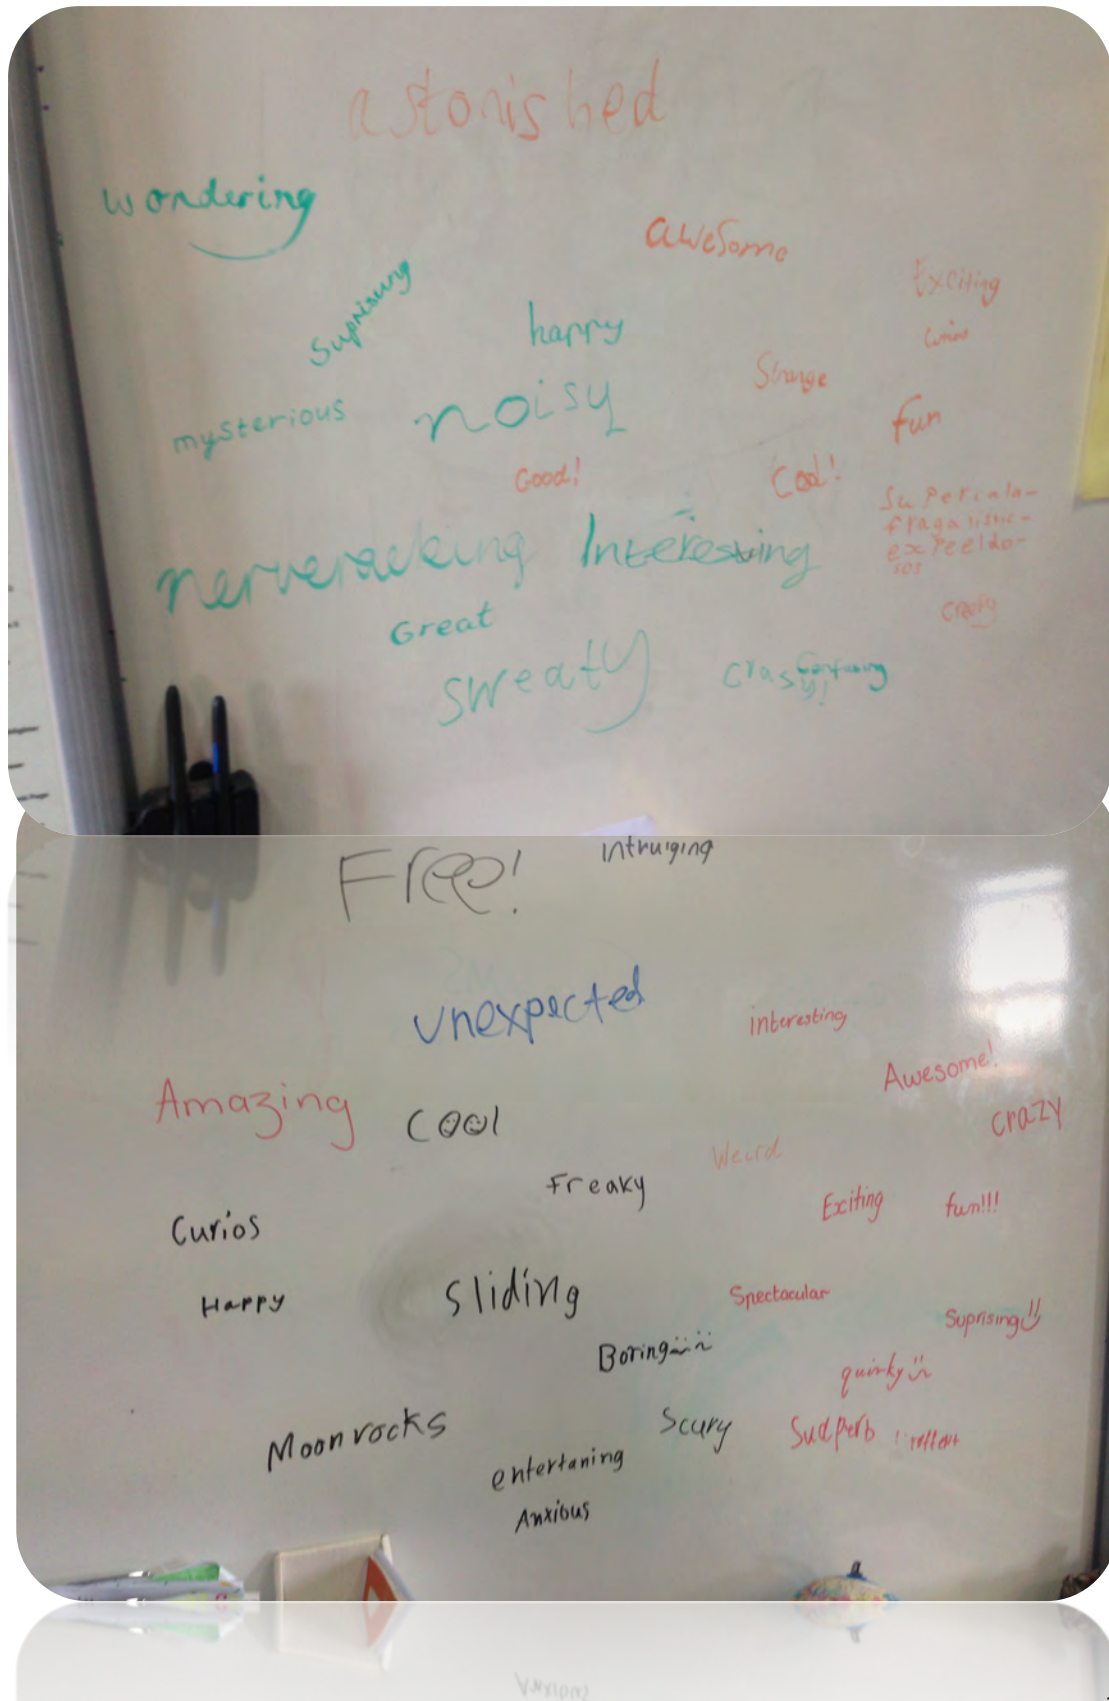 astonished
wondering
awesome
Exciting
Suprisung
happy
curios
Strange
mysterious
noisy
fun
Good!
Cool!
Supercala-
fragalistic-
expeeldo-
sos
nerveracking
Interesting
Great
creepy
sweaty
crasy!
Confusing
Free!
Intruiging
unexpected
interesting
Awesome!
Amazing
Cool
crazy
Weird
Freaky
Exciting
fun!!!
Curios
Happy
Sliding
Spectacular
Suprising
Boring
quirky
Moonrocks
Scary
Sudperb
entertaning
Anxious